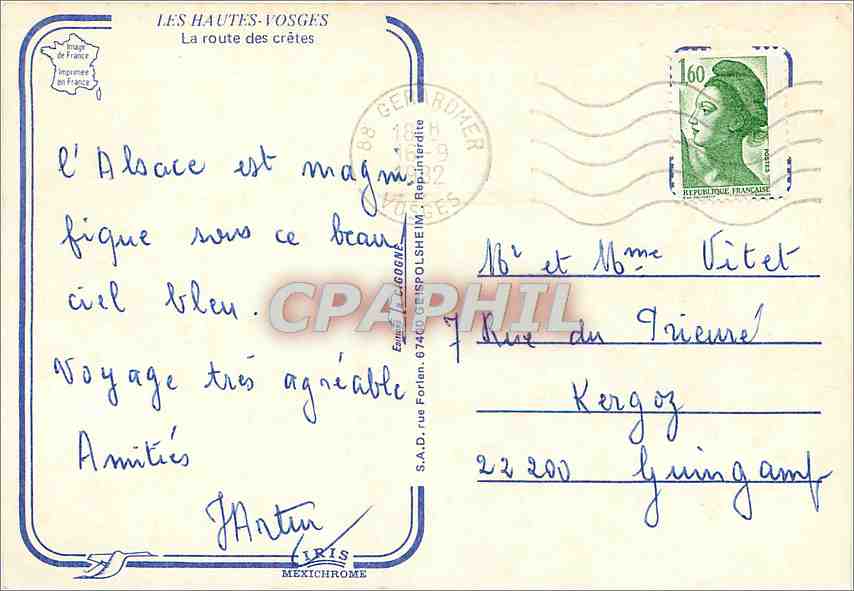 LES HAUTES-VOSGES
La route des crêtes
Image
de France
Imprimée
en France
l'Alsace est magni
fique sous ce beau
ciel bleu.
Voyage très agréable
Amitiés
IRIS
MEXICHROME
Editions La CIGOGNE
S.A.D. rue Forlen. 67400 GEISPOLSHEIM - Rep. interdite
88 GERARDMER
18 H
VOSGES
1,60
POSTES
REPUBLIQUE FRANÇAISE
Mr et Mme Vitet
7 Rue du Prieuré
Kergoz
22200 Guingamp
CPAPHIL